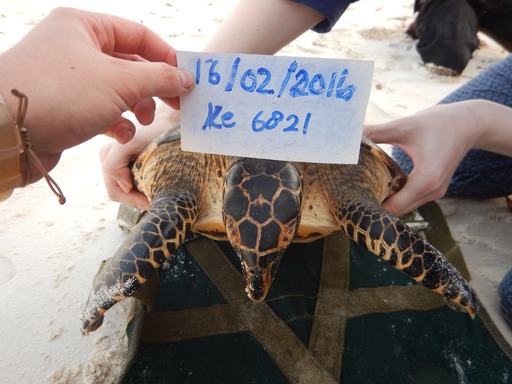 16/02/2016
Ke 6821